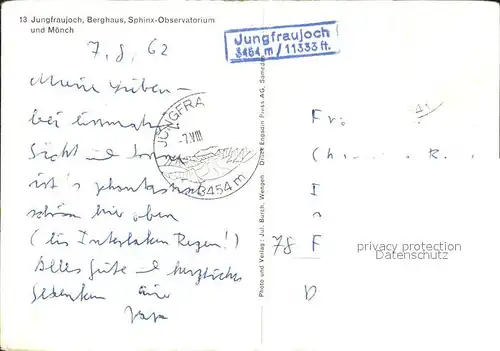 13 Jungfraujoch, Berghaus, Sphinx-Observatorium
und Mönch
Jungfraujoch
3454 m / 11333 ft.
7. 8. 62
Meine Lieben –
bei einmaliger
Sicht und Sonne
ist's phantastisch
schön hier oben
(bis Interlaken Regen!)
Alles Gute und herzliches
Gedenken
JUNGFRA
-7.VIII
3454 m
Photo und Verlag: Jul. Burch, Wengen Druck Engadin Press AG, Samedan
Fr
Ch R.
I
n
78 F
D
privacy protection
Datenschutz